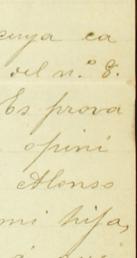 cuya ca
del n.º 8.
Es prova
opini
Alonso
mi hija,